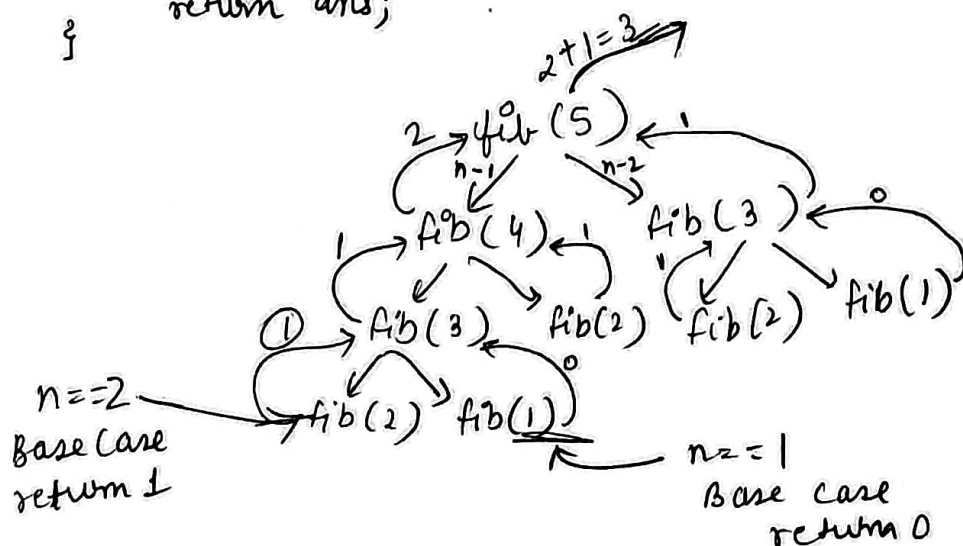 return ans;
}
2+1=3
2 fib(5) 1
n-1 n-2
fib(4) fib(3) 0
1 1
1 fib(3) fib(2) fib(2) fib(1)
1
0
n==2 fib(2) fib(1)
Base Case
return 1
n==1
Base case
return 0